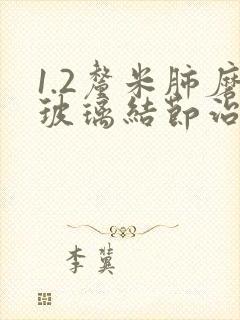 1.2釐米肺磨
玻璃結節治
李冀